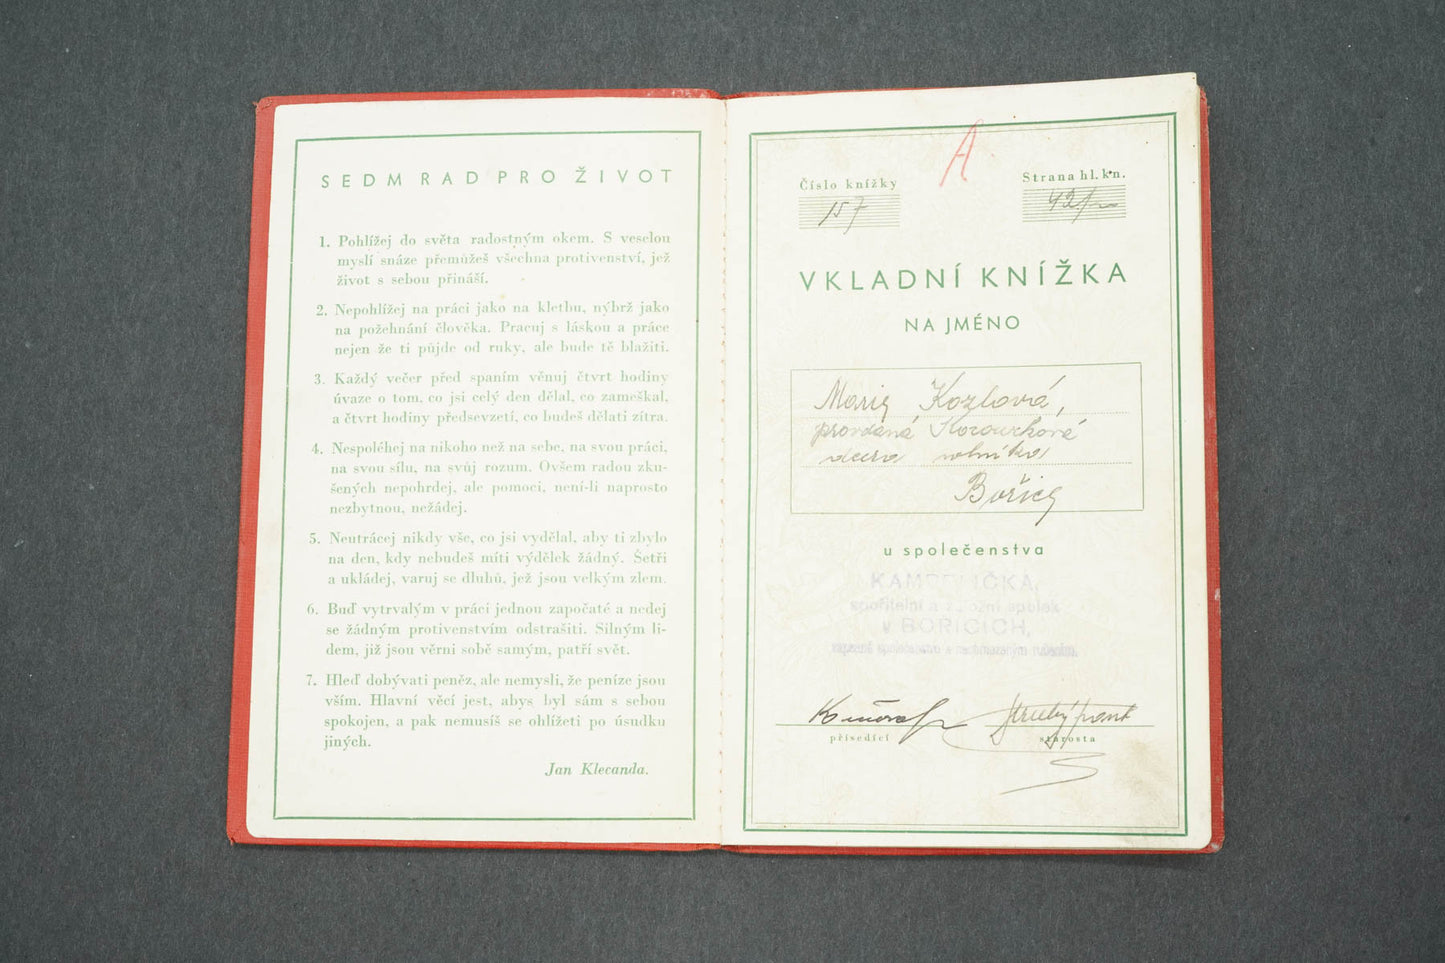 SEDM RAD PRO ŽIVOT
1. Pohlížej do světa radostným okem. S veselou
myslí snáze přemůžeš všechna protivenství, jež
život s sebou přináší.
2. Nepohlížej na práci jako na kletbu, nýbrž jako
na požehnání člověka. Pracuj s láskou a práce
nejen že ti půjde od ruky, ale bude tě blažiti.
3. Každý večer před spaním věnuj čtvrt hodiny
úvaze o tom, co jsi celý den dělal, co zameškal,
a čtvrt hodiny předsevzetí, co budeš dělati zítra.
4. Nespoléhej na nikoho než na sebe, na svou práci,
na svou sílu, na svůj rozum. Ovšem radou zku-
šených nepohrdej, ale pomoci, není-li naprosto
nezbytnou, nežádej.
5. Neutrácej nikdy vše, co jsi vydělal, aby ti zbylo
na den, kdy nebudeš míti výdělek žádný. Šetři
a ukládej, varuj se dluhů, jež jsou velkým zlem.
6. Buď vytrvalým v práci jednou započaté a nedej
se žádným protivenstvím odstrašiti. Silným li-
dem, již jsou věrni sobě samým, patří svět.
7. Hleď dobývati peněz, ale nemysli, že peníze jsou
vším. Hlavní věcí jest, abys byl sám s sebou
spokojen, a pak nemusíš se ohlížeti po úsudku
jiných.
Jan Klecanda.
A
Číslo knížky
157
Strana hl. kn.
42/
VKLADNÍ KNÍŽKA
NA JMÉNO
Marie Kozlová,
provdaná
dcera rolníka
Bořice
u společenstva
KAMPELIČKA,
spořitelní a záložní spolek
v BOŘICÍCH,
přísedící
starosta